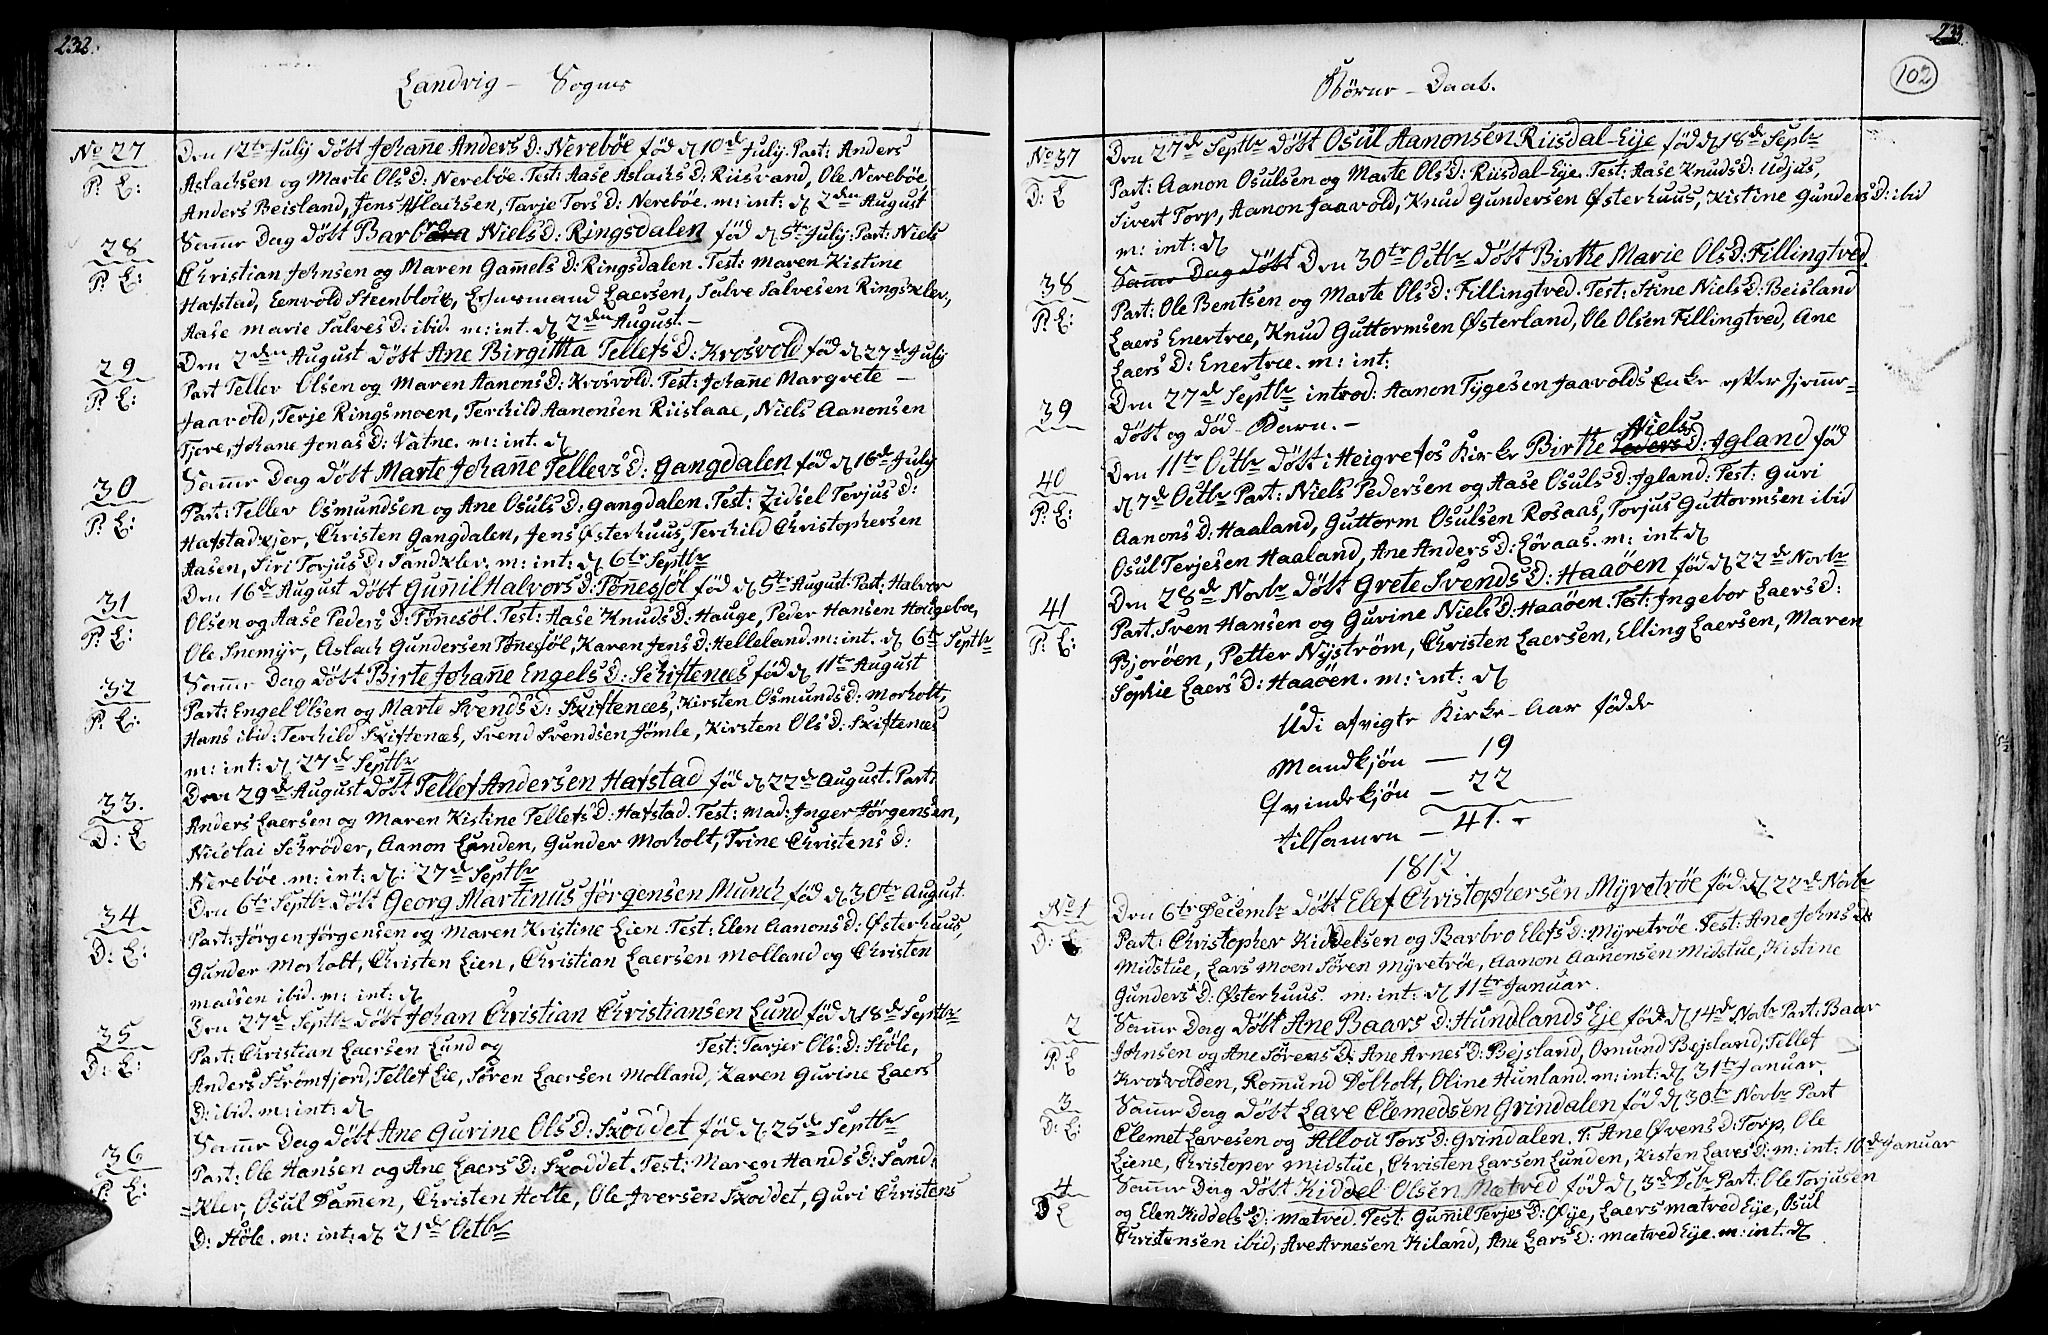 232.
Landvig – Sogns
No 27
P: E:
Den 12te July døbt Johañe Anders D: Nerebøe fød d 10d July. Part: Anders
Aslachsen og Marte Ols D: Nerebøe. Test: Aase Aslachs D: Riisvand, Ole Nerebøe
Anders Beisland, Jens Aslachsen, Tarje Tors D: Nerebøe. m: int: d 2den August
28
P: E:
Samme Dag døbt Barbra Niels D: Ringsdalen fød d 5te July: Part: Niels
Christian Johnsen og Maren Gam̃els D: Ringsdalen. Test: Maren Kistine
Hafstad, Eenvold Steenblock, Laersen, Salve Salvesen Ringsklev,
Aase Marie Salves D: ibid. m: int. d 2den August. –
29
P: E:
Den 2den August døbt Ane Birgitta Tellefs D: Krosvold fød d 27d July
Part Tellev Olsen og Maren Aanons D: Krosvold. Test: Johañe Margrete –
Jaavold, Terje Ringsmoen, Terchild Aanonsen Riislaae, Niels Aanonsen
Tjore, Johane Jonas D: Vatne. m: int. d
30
P: E:
Samme Dag døbt Marte Johañe Tellevs D: Gangdalen fød d 16d July
Part: Tellev Osmundsen og Ane Osuls D: Gangdalen. Test: Zidsel Terjus D:
Hafstadkjer, Christen Gangdalen, Jens Østerhuus, Terchild Christophersen
Aasen, Siri Torjus D: Sandklev. m: int: d 6te Septbr
31
P: E:
Den 16d August døbt Guñil Halvors D: Tøñessøl fød d 5te August. Part: Halvor
Olsen og Aase Peders D: Tøñesøl. Test: Aase Knuds D: Hauge, Peder Hansen
Ole Snemyr, Aslach Gundersen Tøñesøl, Karen Jens D: Helleland. m: int. d 6te Septbr
32
P: E:
Samme Dag døbt Birte Johañe Engels D: Schiftenæs fød d 11te August
Part: Engel Olsen og Marte Svends D: Skiftenæs, Kirsten Osmunds D: Morholt,
Hans ibid: Terchild Skiftenæs, Svend Svendsen Jømle, Kirsten Ols D: Skiftenæs
m: int: d 27d Septbr
33.
D: E
Den 29d August døbt Tellef Andersen Hafstad fød d 22d August. Part:
Anders Laersen og Maren Kistine Tellefs D: Hafstad. Test: Mad: Inger Jørgensen,
Nicolai Schrøder, Aanon Lunden, Gunder Morholt, Trine Christens D:
Nerebøe. m: int: d: 27d Septbr
34
D: E:
Den 6te Septbr døbt Georg Martinus Jørgensen Munch fød d 30te August.
Part: Jørgen Jørgensen og Maren Kristine Lien. Test: Elen Aanons D: Østerhuus,
Gunder Morholt, Christen Lien, Christian Laersen Molland og Christen
Madsen ibid. m: int: d
35
D: E:
Den 27d Septbr døbt Johan Christian Christiansen Lund fød d 18d Septbr
Part: Christian Laersen Lund og Test: Tarjer Ols: D: Støle,
Anders Strømfjord, Tellef Lie, Søren Laersen Molland, Karen Gurine Laers
D: ibid. m: int: d
36
P: E:
Samme Dag døbt Ane Gurine Ols D: Skoddet fød d. 25d Septbr
Part: Ole Hansen og Ane Laers D: Skoddet. Test: Maren Hands D: Sand-
=klev, Osul Dam̃en, Christen Holte, Ole Iversen Skoddet, Guri Christens
D: Støle. m: int: d 21d Octbr
233
102
Børne – Daab.
No 37
D: E
Den 27d Septbr døbt Osul Aanonsen Riisdal-Eje fød d 18d Septbr
Part: Aanon Osulsen og Marte Ols D: Riisdal-Eje. Test: Aase Knuds D: Udjus,
Sivert Torp, Aanon Jaavold, Knud Gundersen Østerhuus, Kistine Gunders D: ibid
m: int: d
38
P: E:
Samme Dag døbt Den 30te Octbr døbt Birthe Marie Ols D: Fillingtved
Part: Ole Bentsen og Marte Ols D: Fillingtved. Test: Stine Niels D: Beisland
Laers Enertræ, Knud Guttormsen Østerland, Ole Olsen Fillingtved, Ane
Laers D: Enertræ. m: int:
39
Den 27d Septbr introd: Aanon Tygesen Jaavolds Enke efter hjemme-
døbt og død Barn. –
40
P: E:
Den 11te Octbr døbt i Heigrefos Kirke Birthe Niels D: Igland fød
d 7d Octbr Part: Niels Pedersen og Aase Osuls D: Igland: Test: Guri
Aanons D: Haaland, Guttorm Osulsen Rosaas, Torjus Guttormsen ibid
Osul Terjesen Haaland, Ane Anders D: Løvaas. m: int. d
41
P: E:
Den 28d Novbr døbt Grete Svends D: Haaøen fød d 22d Novbr
Part. Sven Hansen og Gurine Niels D: Haaøen. Test: Ingebor Laers D:
Bjorøen, Petter Nyström, Christen Laersen, Elling Laersen, Maren
Sophie Laers D: Haaøen. m: int: d
Udi afvigte Kirke-Aar fødde
Mandkjøn – 19
Qvindekjøn – 22
tilsamen – 41. –
1812.
No 1
D: E
Den 6te Decembr døbt Elef Christophersen Myretrøe fød d 22d Novbr
Part: Christopher Kiddelsen og Barbro Elefs D: Myretrøe. Test: Ane Johns D:
Midstue, Lars Moen Søren Myretrøe, Aanon Aanonsen Midstue, Kistine
Gunders D: Østerhuus. m: int: d 11te Januar.
2
P: E
Samme Dag døbt Ane Baars D: Hundlands Eje fød d 14d Novbr Part: Baar
Johnsen og Ane Sørens D: Ane Arnes D: Bejsland, Osmund Bejsland, Tellef
Krosvolden, Rom̃und Dolholt, Oline Hunland. m: int: d 31te Januar.
3
D: E:
Samme Dag døbt Lave Clemedsen Grindalen fød d 30te Novbr Part
Clemet Lavesen og Allou Tors D: Grindalen. T: Ane Øvens D: Torp, Ole
Liene, Christoper Midstue, Christen Larsen Lunden, Kisten Laves D: m: int: 10de Januar
4
D E
Samme Dag døbt Kiddel Olsen Mætved fød d 3d Debr Part: Ole Torjusen
og Elen Kiddels D: Mætved. Test: Guñil Terjes D: Øije, Laers Mætved Eje, Osul
Christensen ibid, Are Arnesen Kiland, Ane Lars D: Mætved Eje. m: int: d